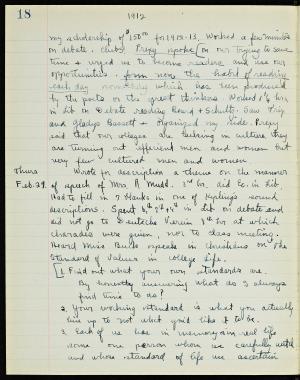 18
1912
my scholarship of $150.00 for 1912-13. Worked a few minutes
on debate. Clubs. Prexy spoke on our trying to save
time & urged us to become readers and use our
opportunities. form now the habit of reading
each day something which has been produced
by the poets or the great thinkers. Worked 1 1/2 hrs
in Lib on Debate reading
and Gladys Bassett - organized my side. Prexy
said that our colleges are failing in culture they
are turning out efficient men and women but
very few cultured men and women
Thurs
Feb. 29.
Wrote for description a theme on the manner
of speech of Mrs. A Mudd. 3rd hr. did Ec. in Lib.
Had to fill in 7 blanks in one of Kipling's sound
descriptions. Spent in Lib on debate and
did not go to Deutsche Verein 7th hr at which
charades were given, nor to class meeting.
Heard Miss speak in Christians on "The
Standard of Values in College life.
1. Find out what your own standards are.
By honestly answering what do I always
find time to do?
2. Your working standard is what you actually
live up to not what you'd like it to be.
3. Each of us has in memory or in real life
some one person whom we carefully watch
and whose standard of life we ascertain